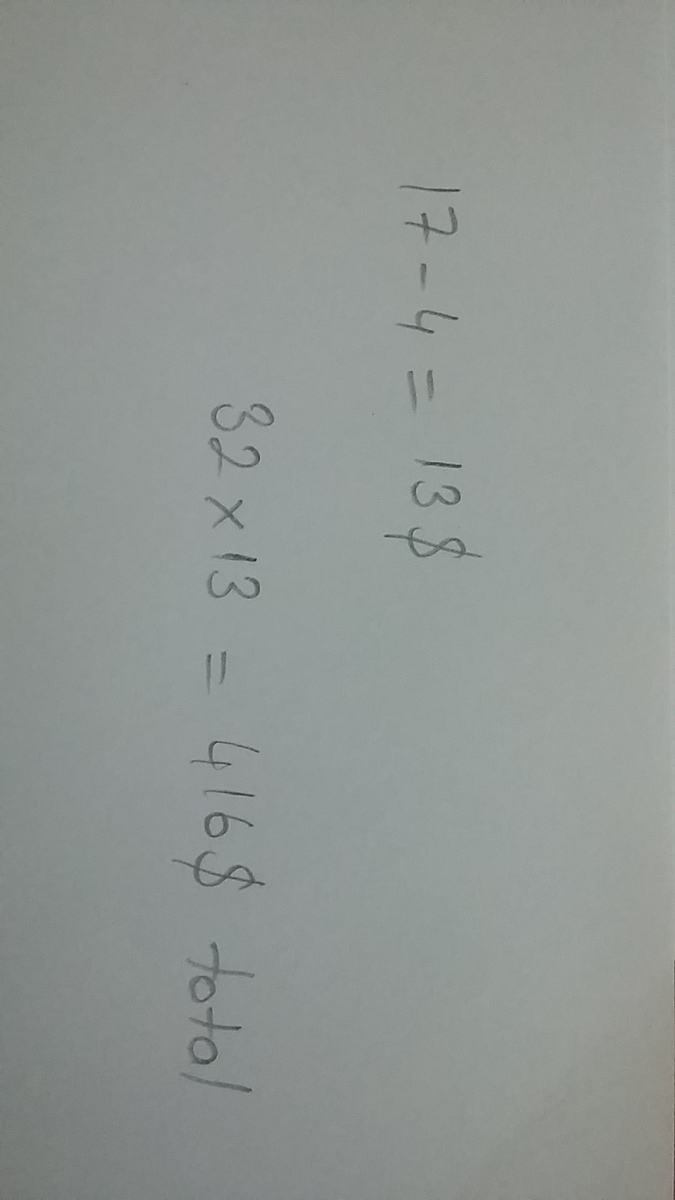 17 - 4 = 13$
32 × 13 = 416$ total